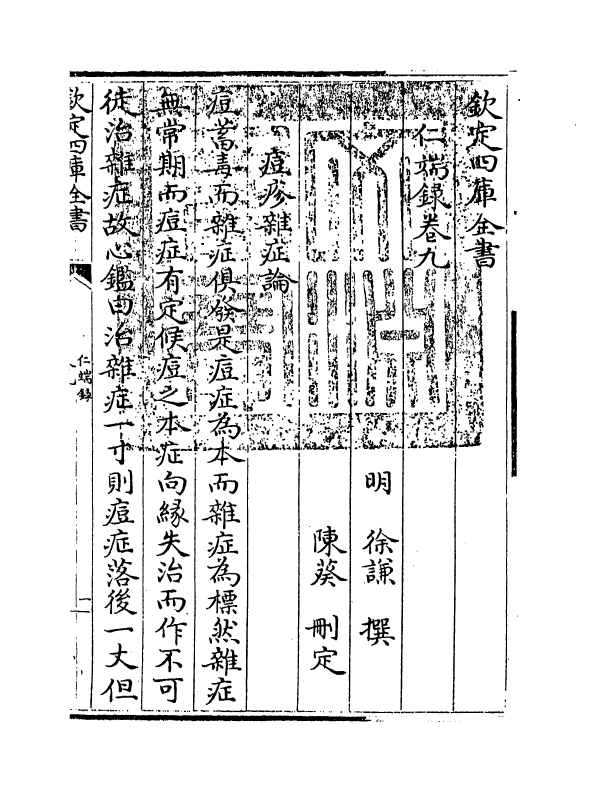 欽定四庫全書
仁端錄卷九
明 徐謙 撰
陳葵 刪定
痘疹雜症論
痘蓄毒而雜症俱發是痘症為本而雜症為標然雜症
無常期而痘症有定候痘之本症向緣失治而作不可
徒治雜症故心鑑曰治雜症一寸則痘症落後一丈但
欽定四庫全書
仁端錄
卷九
一